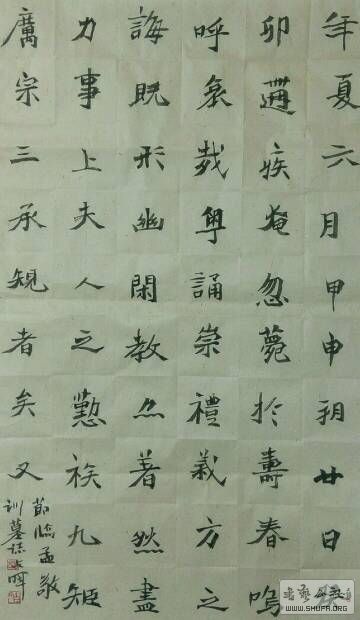 年夏六月甲申朔廿日
卯遘疾奄忽薨於壽春嗚
呼哀哉粵誦崇禮義方之
誨既形幽閑教亦著然盡
力事上夫人之懃族九姬
廣宗三承規者矣又
節臨孟敬
訓墓誌
WWW.SHUFA.ORG